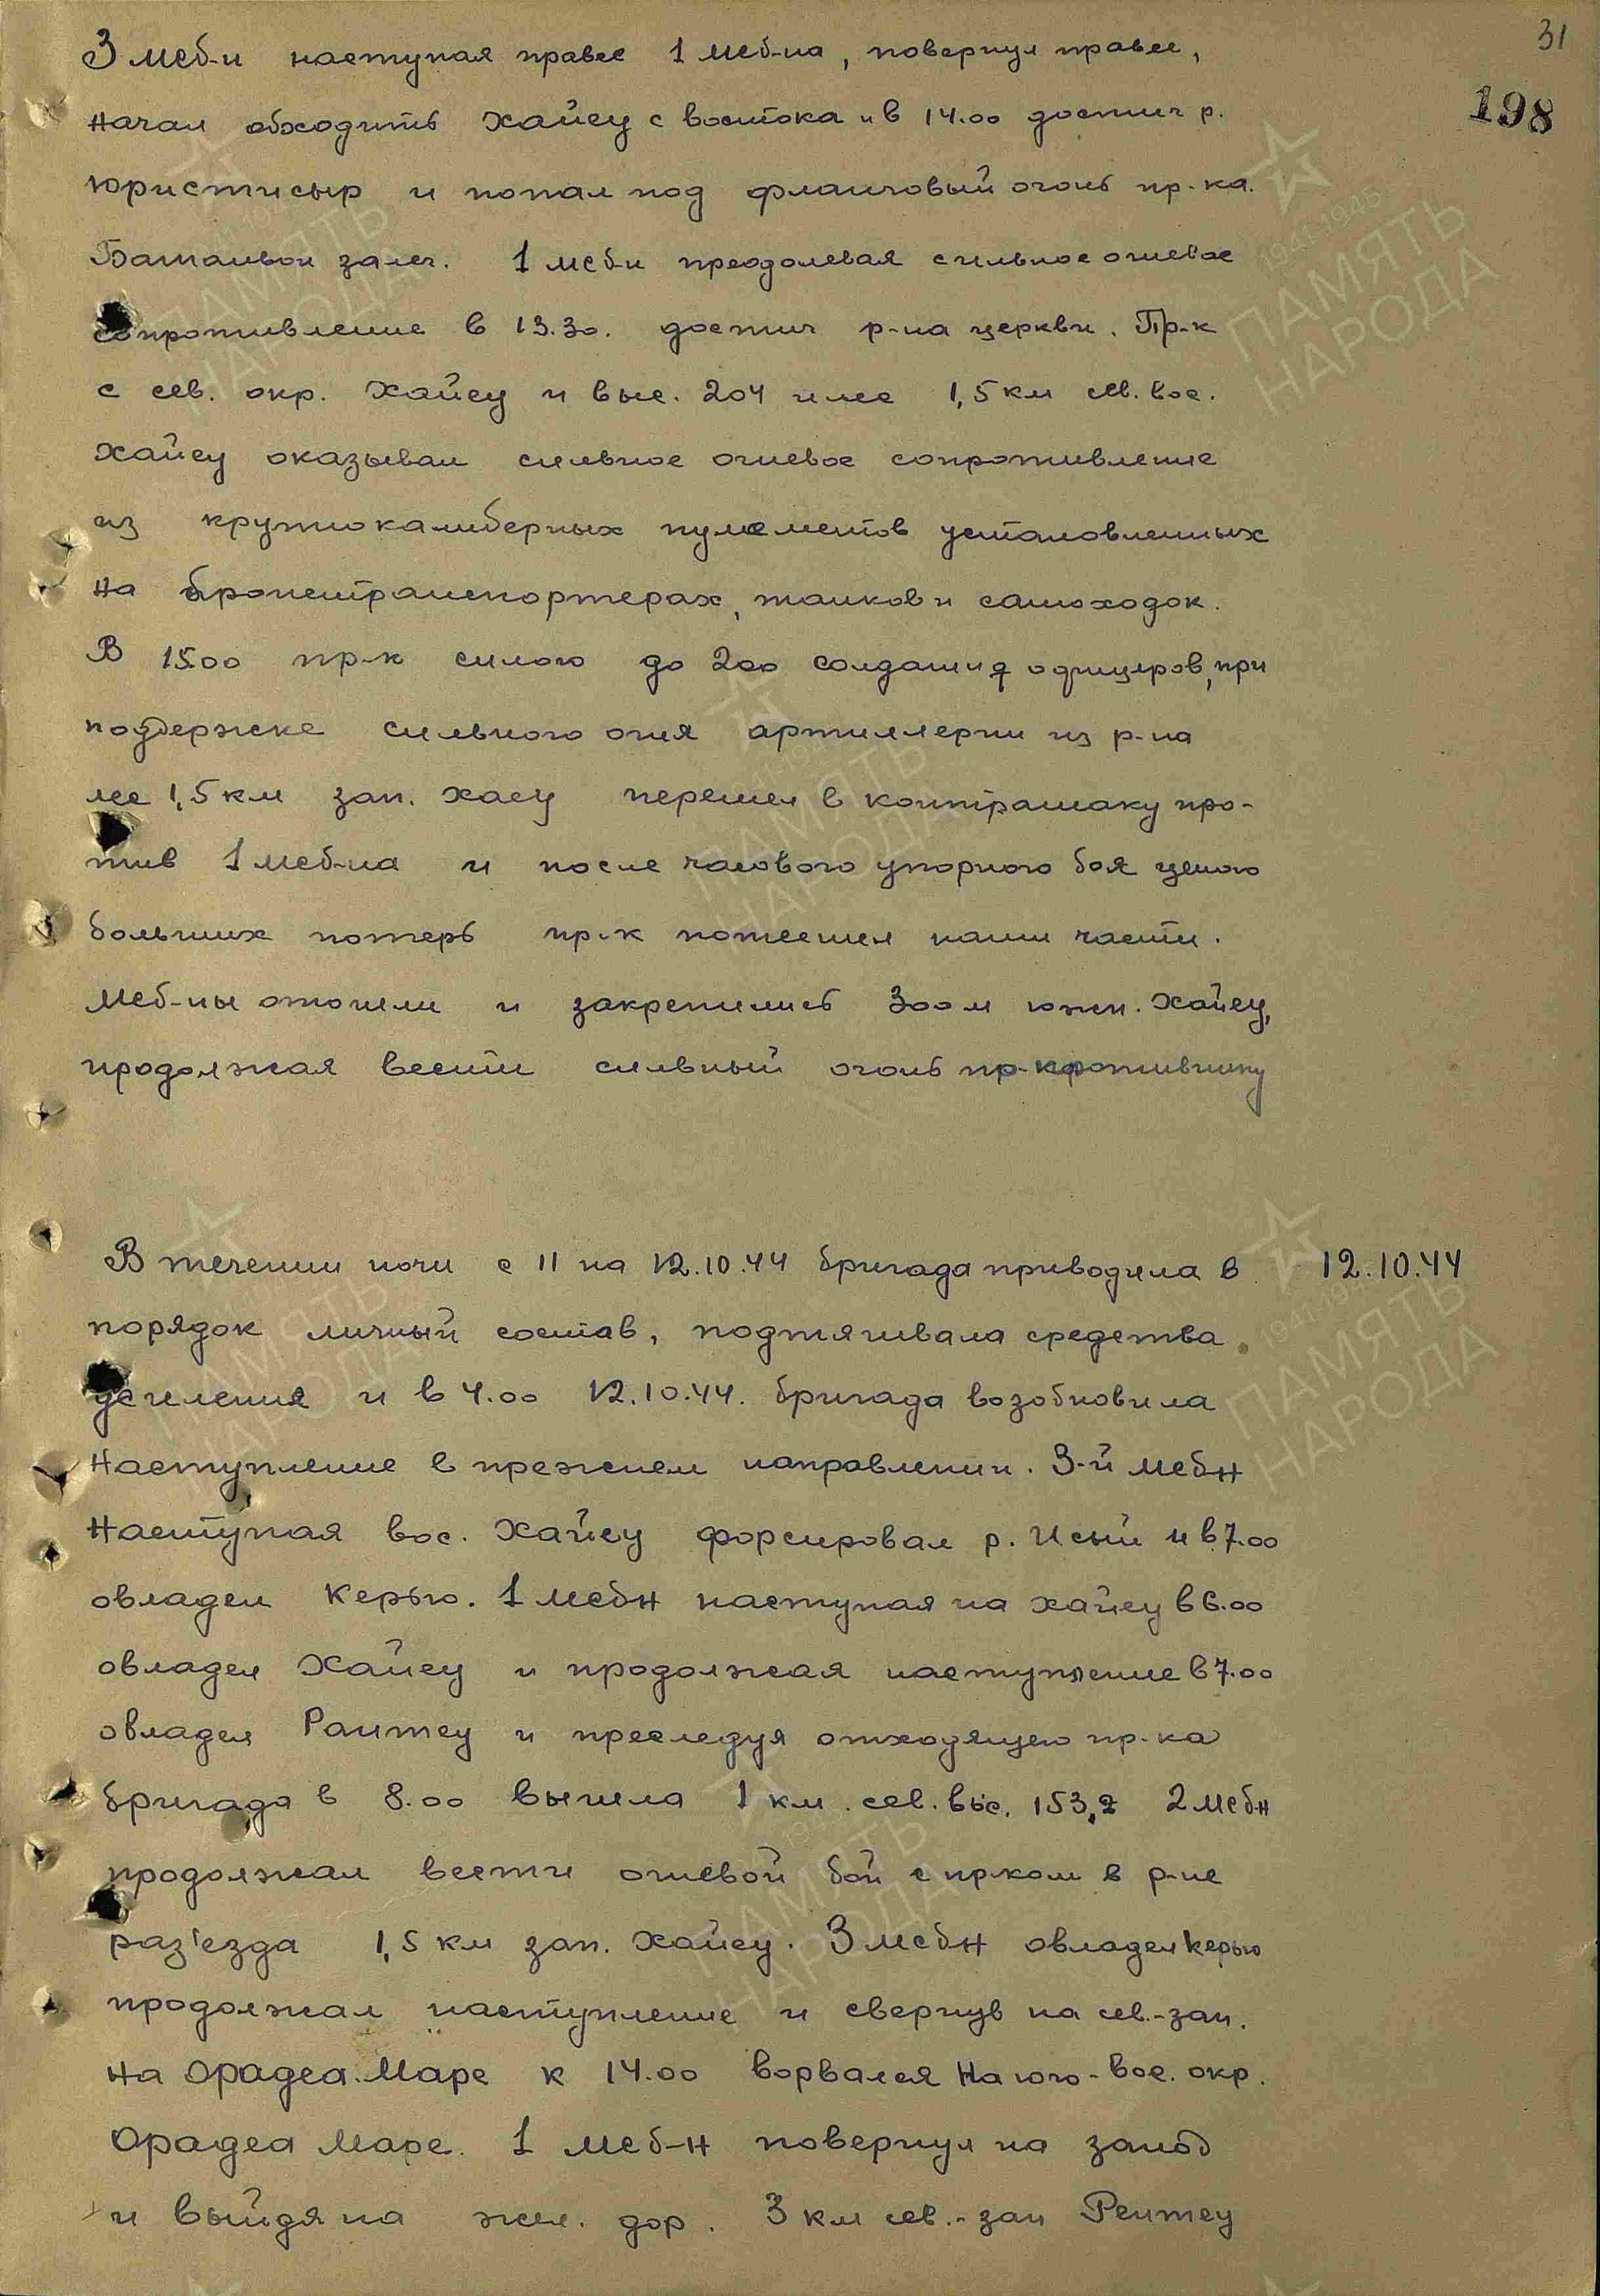 31
198
3 мсб-н наступая правее 1 мсб-на, повернул правее,
начал обходить Хайеу с востока и в 14.00 достиг р.
юристисыр и попал под фланговый огонь пр-ка.
Батальон залег. 1 мсб-н преодолевая сильное огневое
сопротивление в 13.30. достиг р-на церкви. Пр-к
с сев. окр. Хайеу и выс. 204 и лес 1,5 км сев. вос.
Хайеу оказывал сильное огневое сопротивление
из крупнокалиберных пулеметов установленных
на бронетранспортерах, танков и самоходок.
В 15.00 пр-к силою до 200 солдат и офицеров, при
поддержке сильного огня артиллерии из р-на
лес 1,5 км зап. Хаеу перешел в контратаку про-
тив 1 мсб-на и после часового упорного боя ценою
больших потерь пр-к потеснил наши части.
Мсб-ны отошли и закрепились 300 м южн. Хайеу,
продолжая вести сильный огонь противнику
В течении ночи с 11 на 12.10.44 бригада приводила в
12.10.44
порядок личный состав, подтягивала средства
усиления и в 4.00 12.10.44. бригада возобновила
Наступление в прежнем направлении. 3-й мсбн
Наступая вос. Хайеу форсировал р. Исыи и в 7.00
овладел Керью. 1 мсбн наступая на Хайеу в 6.00
овладел Хайеу и продолжая наступление в 7.00
овладел Рантеу и преследуя отходящего пр-ка
бригада в 8.00 вышла 1 км. сев. выс. 153,2 2 мсбн
продолжал вести огневой бой с пр-ком в р-не
раз'езда 1,5 км зап. Хайеу. 3 мсбн овладел Керью
продолжал наступление и свернув на сев.-зап.
на Орадеа-Маре к 14.00 ворвался на юго-вос. окр.
Орадеа Маре. 1 мсб-н повернул на запад
и выйдя на жел. дор. 3 км сев.-зап Рентеу
ПАМЯТЬ
НАРОДА
1941-1945